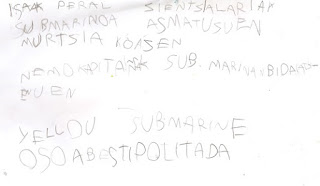 ISAAK PERAL SIENTSALARIAK
SUBMARINOA ASMATUSUEN
MURTSIA KOASEN
NEMO KAPITANAK SUB MARINAX BIDAIA
EUEN
YELLOU SUBMARINE
OSO ABESTI POLITA DA